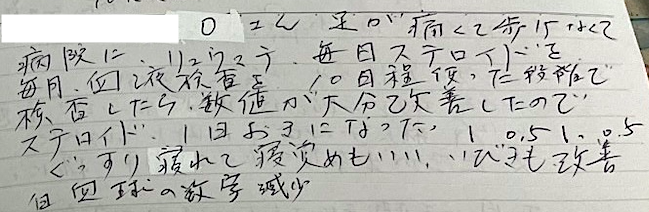 Oさん 足が痛くて歩けなくて
病院に、リュウマチ、毎日ステロイドを
毎月、血液検査を、10日程使った段階で
検査したら、数値が大分改善したので
ステロイド、1日おきになった 1 0.5 1、0.5
ぐっすり寝れて寝覚めもいい、いびきも改善
白血球の数字減少